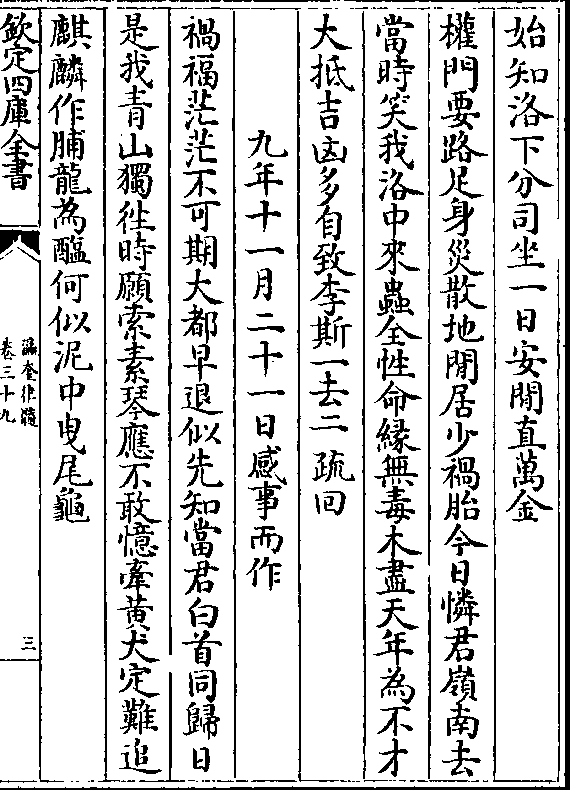 始知洛下分司坐一日安閒直萬金
權門要路足身災散地閒居少禍胎今日憐君嶺南去
當時笑我洛中來蟲全性命縁無毒木盡天年為不才
大抵吉凶多自致李斯一去二疏回
九年十一月二十一日感事而作
禍福茫茫不可期大都早退似先知當君白首同歸日
是我青山獨徃時願索素琴應不敢憶牽黄犬定難追
麒麟作脯龍為醢何似泥中曳尾龜
欽定四庫全書
瀛奎律髓
卷三十九
三